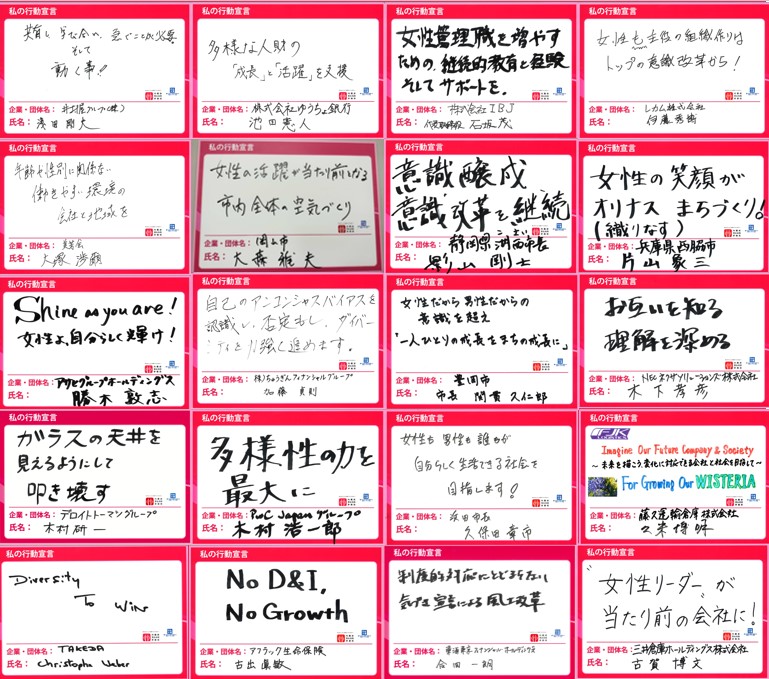 私の行動宣言
そして
動く事!!
企業・団体名:
氏名:
私の行動宣言
多様な人財の
「成長」と「活躍」を支援
企業・団体名: 株式会社ゆうちょ銀行
氏名: 池田憲人
私の行動宣言
女性管理職を増やす
ための、継続的教育と経験
そしてサポートを。
企業・団体名: 株式会社IBJ
氏名: 代表取締役 石坂茂
私の行動宣言
女性も主役の組織作りは
トップの意識改革から!
企業・団体名: レカム株式会社
氏名: 伊藤秀博
私の行動宣言
年齢や性別に関係ない
働きやすい環境の
会社と地域を
企業・団体名:
氏名: 大塚
私の行動宣言
女性の活躍が当たり前になる
市内全体の空気づくり
企業・団体名: 岡山市
氏名: 大森雅夫
私の行動宣言
意識醸成
意識改革を継続
企業・団体名: 静岡県湖西市長
氏名: 影山剛士
私の行動宣言
女性の笑顔が
オリナス まちづくり!
(織りなす)
企業・団体名: 兵庫県西脇市
氏名: 片山象三
私の行動宣言
Shine as you are!
女性よ、自分らしく輝け!
企業・団体名: アサヒグループホールディングス
氏名: 勝木敦志
私の行動宣言
自己のアンコンシャスバイアスを
認識し、否定もし、ダイバー
シティを力強く進めます。
企業・団体名: (株)ちゅうぎんフィナンシャルグループ
氏名: 加藤貞則
私の行動宣言
女性だから男性だからの
常識を超え
「一人ひとりの成長をまちの成長に」
企業・団体名: 豊岡市
氏名: 市長 関貫久仁郎
私の行動宣言
お互いを知る
理解を深める
企業・団体名: NECネッツエスアイ
氏名: 木下孝彦
私の行動宣言
ガラスの天井を
見えるようにして
叩き壊す
企業・団体名: デロイトトーマツグループ
氏名: 木村研一
私の行動宣言
多様性の力を
最大に
企業・団体名: PwC Japanグループ
氏名: 木村浩一郎
私の行動宣言
女性も男性も誰もが
自分らしく生活できる社会を
目指します!
企業・団体名: 浜田市長
氏名: 久保田章市
私の行動宣言
Imagine Our Future Company & Society
~未来を描こう、変化に対応できる会社と社会を目指して~
For Growing Our WISTERIA
企業・団体名: 藤久運輸倉庫株式会社
氏名: 久米博明
私の行動宣言
Diversity
To
Win
企業・団体名: TAKEDA
氏名: Christophe Weber
私の行動宣言
No D&I,
No Growth
企業・団体名: アフラック生命保険
氏名: 古出眞敏
私の行動宣言
制度的対応にとどまらない
気づきと変容による風土改革
企業・団体名: 東海東京フィナンシャル・ホールディングス
氏名: 合田一朗
私の行動宣言
"女性リーダー"が
当たり前の会社に!
企業・団体名: 三井倉庫ホールディングス株式会社
氏名: 古賀博文